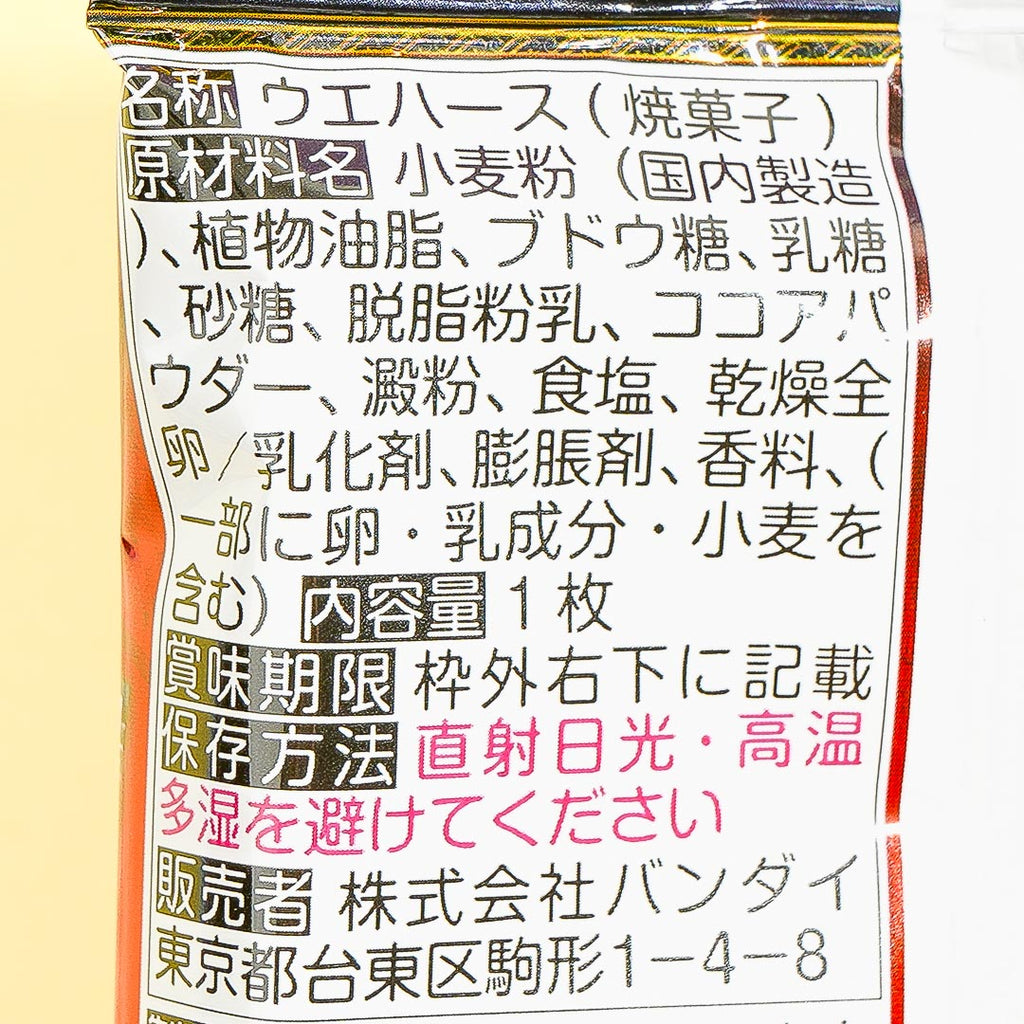 名称 ウエハース(焼菓子)
原材料名 小麦粉(国内製造
)、植物油脂、ブドウ糖、乳糖
、砂糖、脱脂粉乳、ココアパ
ウダー、澱粉、食塩、乾燥全
卵/乳化剤、膨脹剤、香料、(
一部に卵・乳成分・小麦を
含む) 内容量 1枚
賞味期限 枠外右下に記載
保存方法 直射日光・高温
多湿を避けてください
販売者 株式会社バンダイ
東京都台東区駒形1-4-8